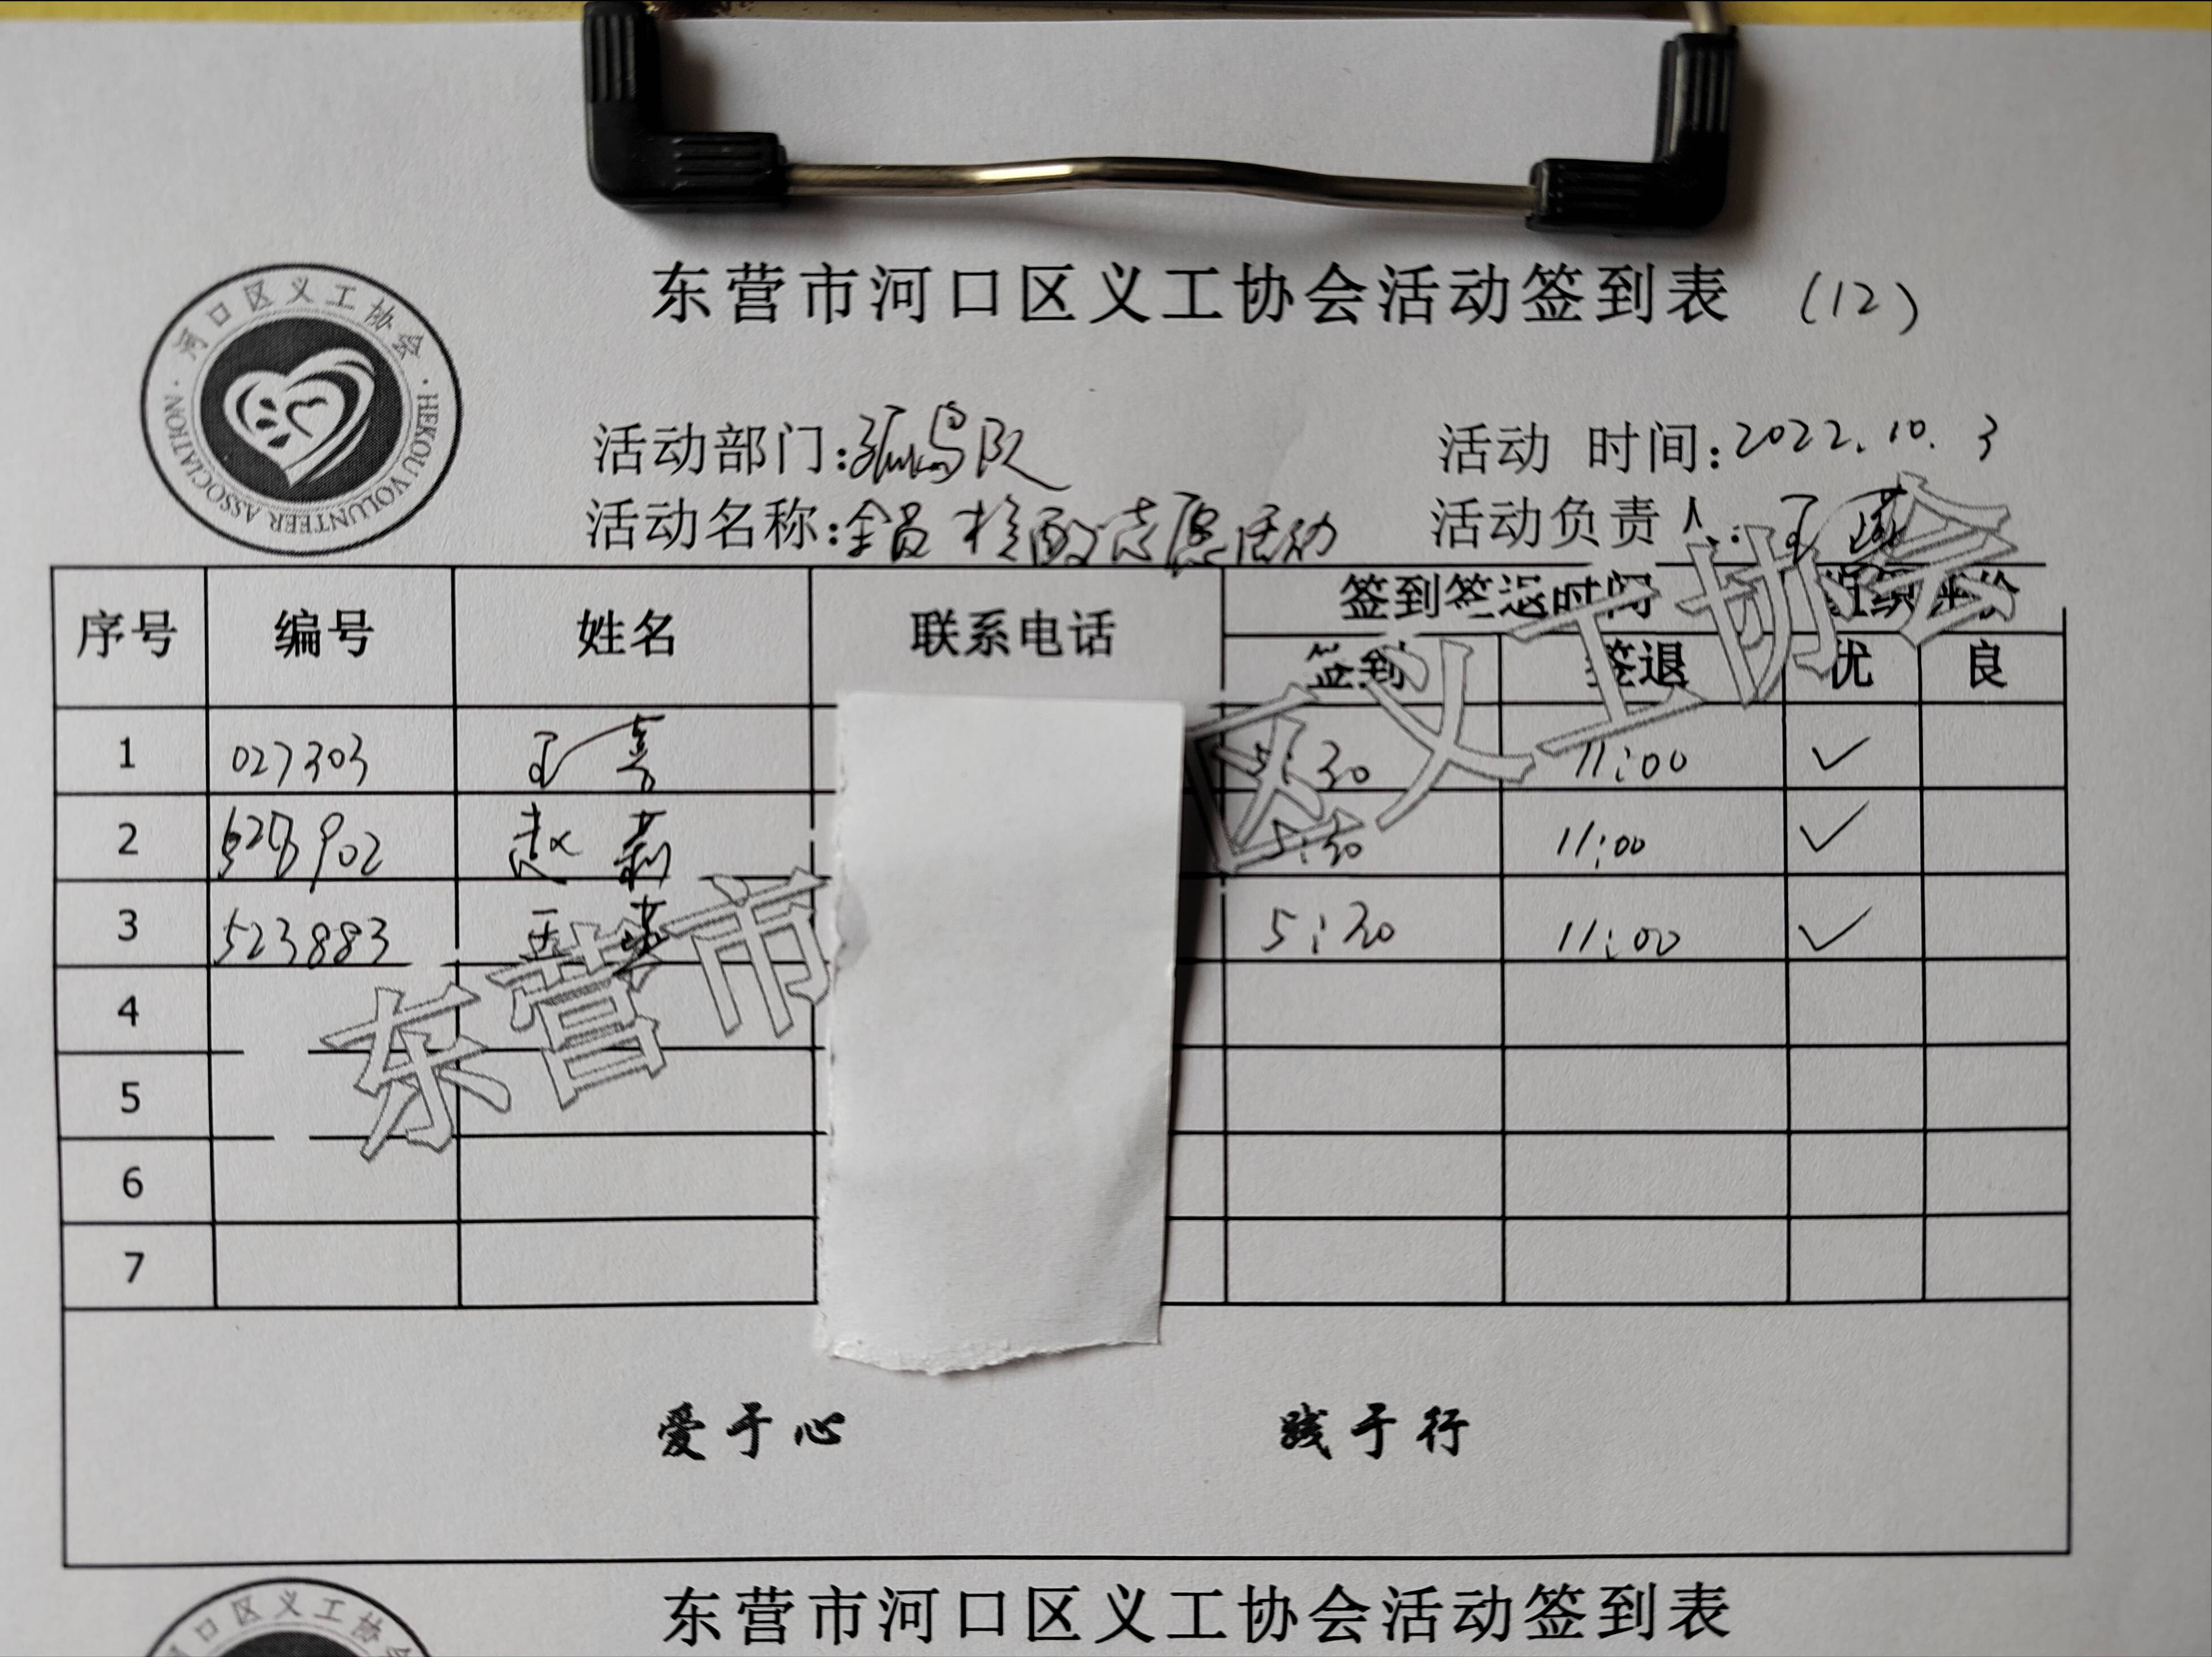 河口区义工协会
HEKOU VOLUNTEER ASSOCIATION
东营市河口区义工协会活动签到表 (12)
活动部门:孤岛队 活动 时间:2022.10.3
活动名称:全员核酸志愿活动 活动负责人:王
序号 编号 姓名 联系电话 签到签退时间 组织评价
签到 签退 优 良
1 027303 王 5:30 11:00 ✓
2 902 赵莉 5:30 11:00 ✓
3 523883 王 5:30 11:00 ✓
4
5
6
7
东营市 区义工协会
爱于心 践于行
河口区义工协会
东营市河口区义工协会活动签到表